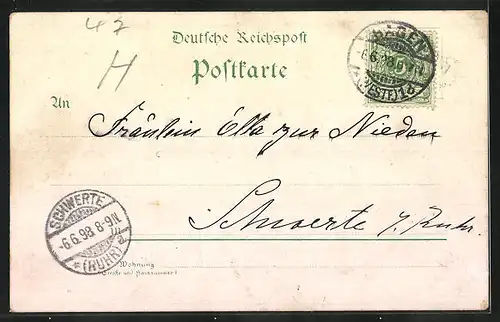 42
H
Deutsche Reichspost
Postkarte
An
Fräulein Ella zur Nieden
Schwerte / Ruhr.
HAGEN
6.6.98
(WESTF.)1d
SCHWERTE
-6.6.98 8-9N.
*(RUHR)a
Wohnung
(Straße und Hausnummer)